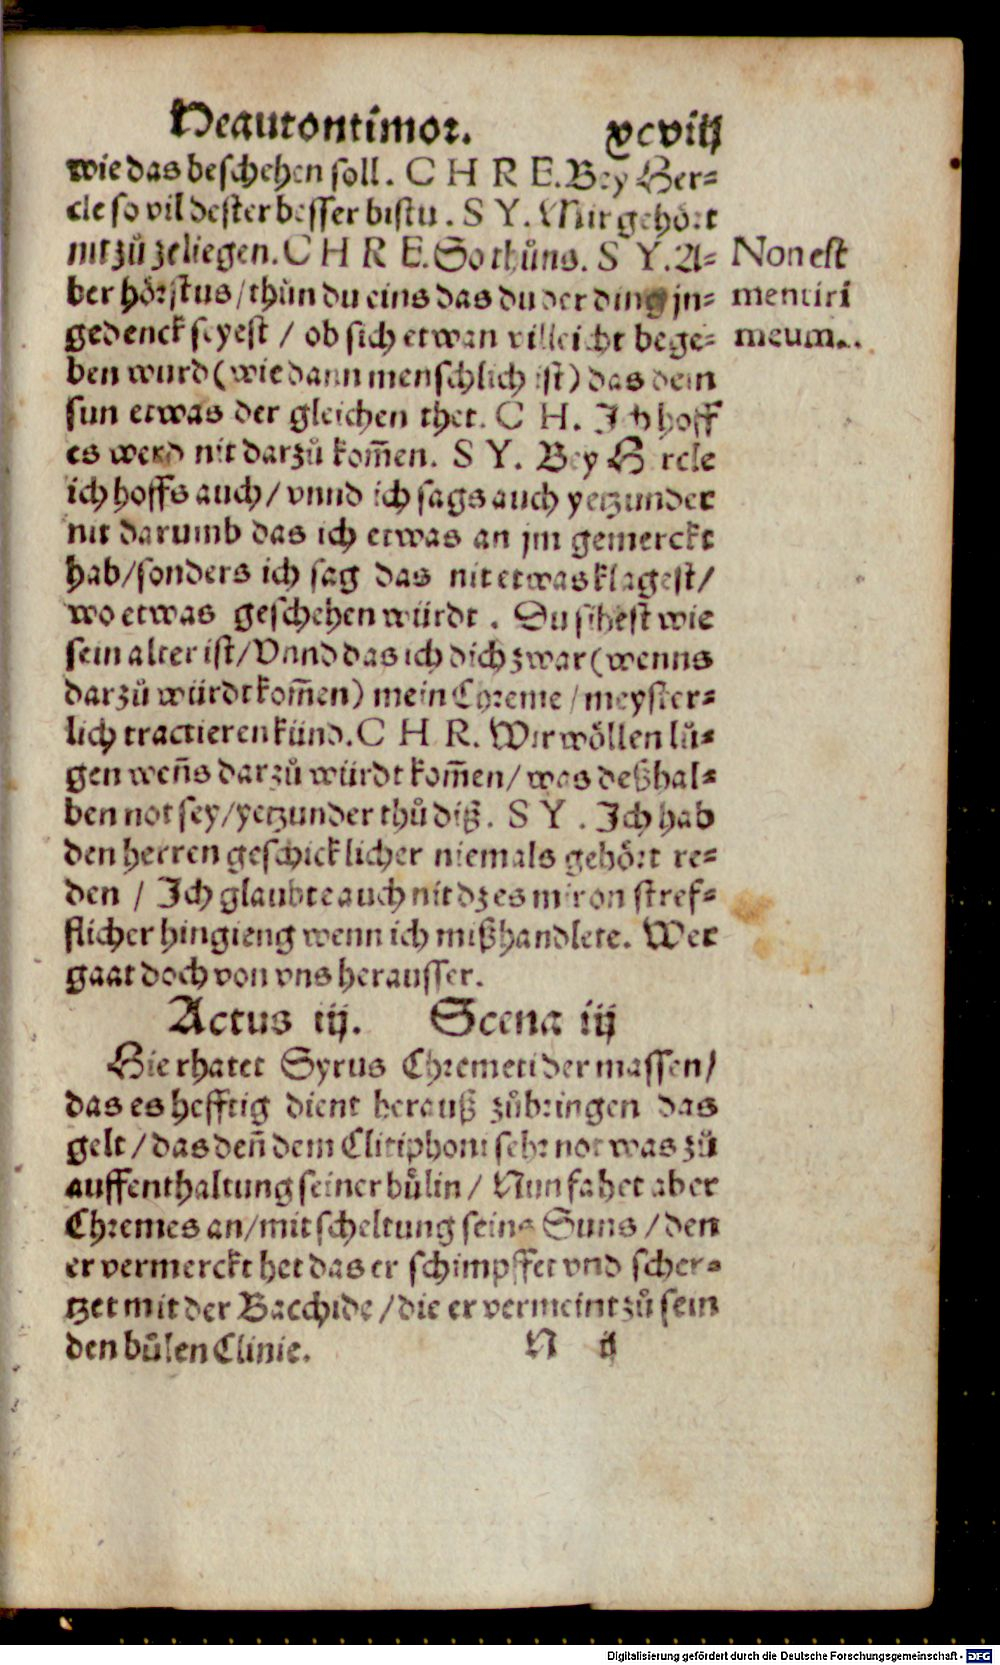 Heautontimor. xcviij
wie das beschehen soll. C H R E. Bey Her-
cle so vil dester besser bistu. S Y. Mir gehört
nit zů ze liegen. C H R E. So thůns. S Y. A-
ber hörstus/thůn du eins das du der ding jn-
gedenck seyest / ob sich etwan villeicht bege-
ben wurd (wie dann menschlich ist) das dein
sun etwas der gleichen thet. C H. Ich hoff
es werd nit darzů kom̄en. S Y. Bey Hercle
ich hoffs auch/ vnnd ich sags auch yetzunder
nit darumb das ich etwas an jm gemerckt
hab/sonders ich sag das nit etwas klagest/
wo etwas geschehen würdt . Du sihest wie
sein alter ist/ Vnnd das ich dich zwar (wenns
darzů würdt kom̄en) mein Chreme / meyster-
lich tractieren künd. C H R. Wir wöllen lů-
gen weñs darzů würdt kom̄en/ was deßhal-
ben not sey/yetzunder thů diß. S Y . Ich hab
den herren geschicklicher niemals gehört re-
den / Ich glaubte auch nit dz es mir on stref-
flicher hingieng wenn ich mißhandlete. Wer
gaat doch von vns herausser.
Non est
mentiri
meum..
Actus iij. Scena iij
Hie rhatet Syrus Chremeti der massen/
das es hefftig dient herauß zůbringen das
gelt / das deñ dem Clitiphoni sehr not was zů
auffenthaltung seiner bůlin / Nun fahet aber
Chremes an/mit scheltung seins Suns / den
er vermerckt het das er schimpffet vnd scher-
tzet mit der Bacchide / die er vermeint zů sein
den bůlen Clinie. N ij
Digitalisierung gefördert durch die Deutsche Forschungsgemeinschaft - DFG